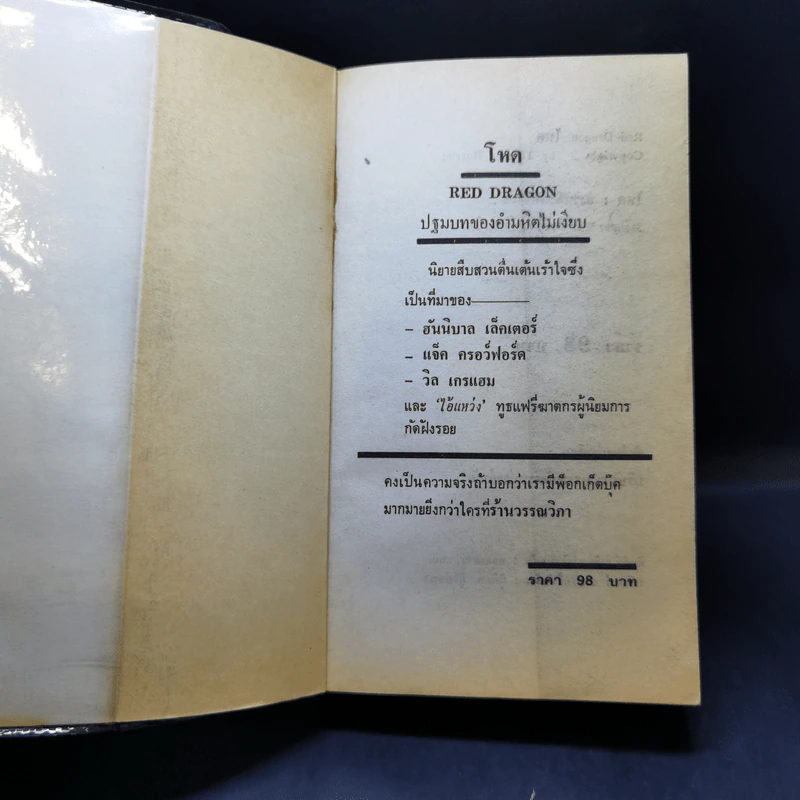 โหด
RED DRAGON
ปฐมบทของอำมหิตไม่เงียบ
นิยายสืบสวนตื่นเต้นเร้าใจซึ่ง
เป็นที่มาของ———
– ฮันนิบาล เล็คเตอร์
– แจ็ค ครอว์ฟอร์ด
– วิล เกรแฮม
และ ‘ไอ้แหว่ง’ ทูธแฟรี่ฆาตกรผู้นิยมการ
กัดฝังรอย
คงเป็นความจริงถ้าบอกว่าเรามีพ็อกเก็ตบุ๊ค
มากมายยิ่งกว่าใครที่ร้านวรรณวิภา
ราคา 98 บาท